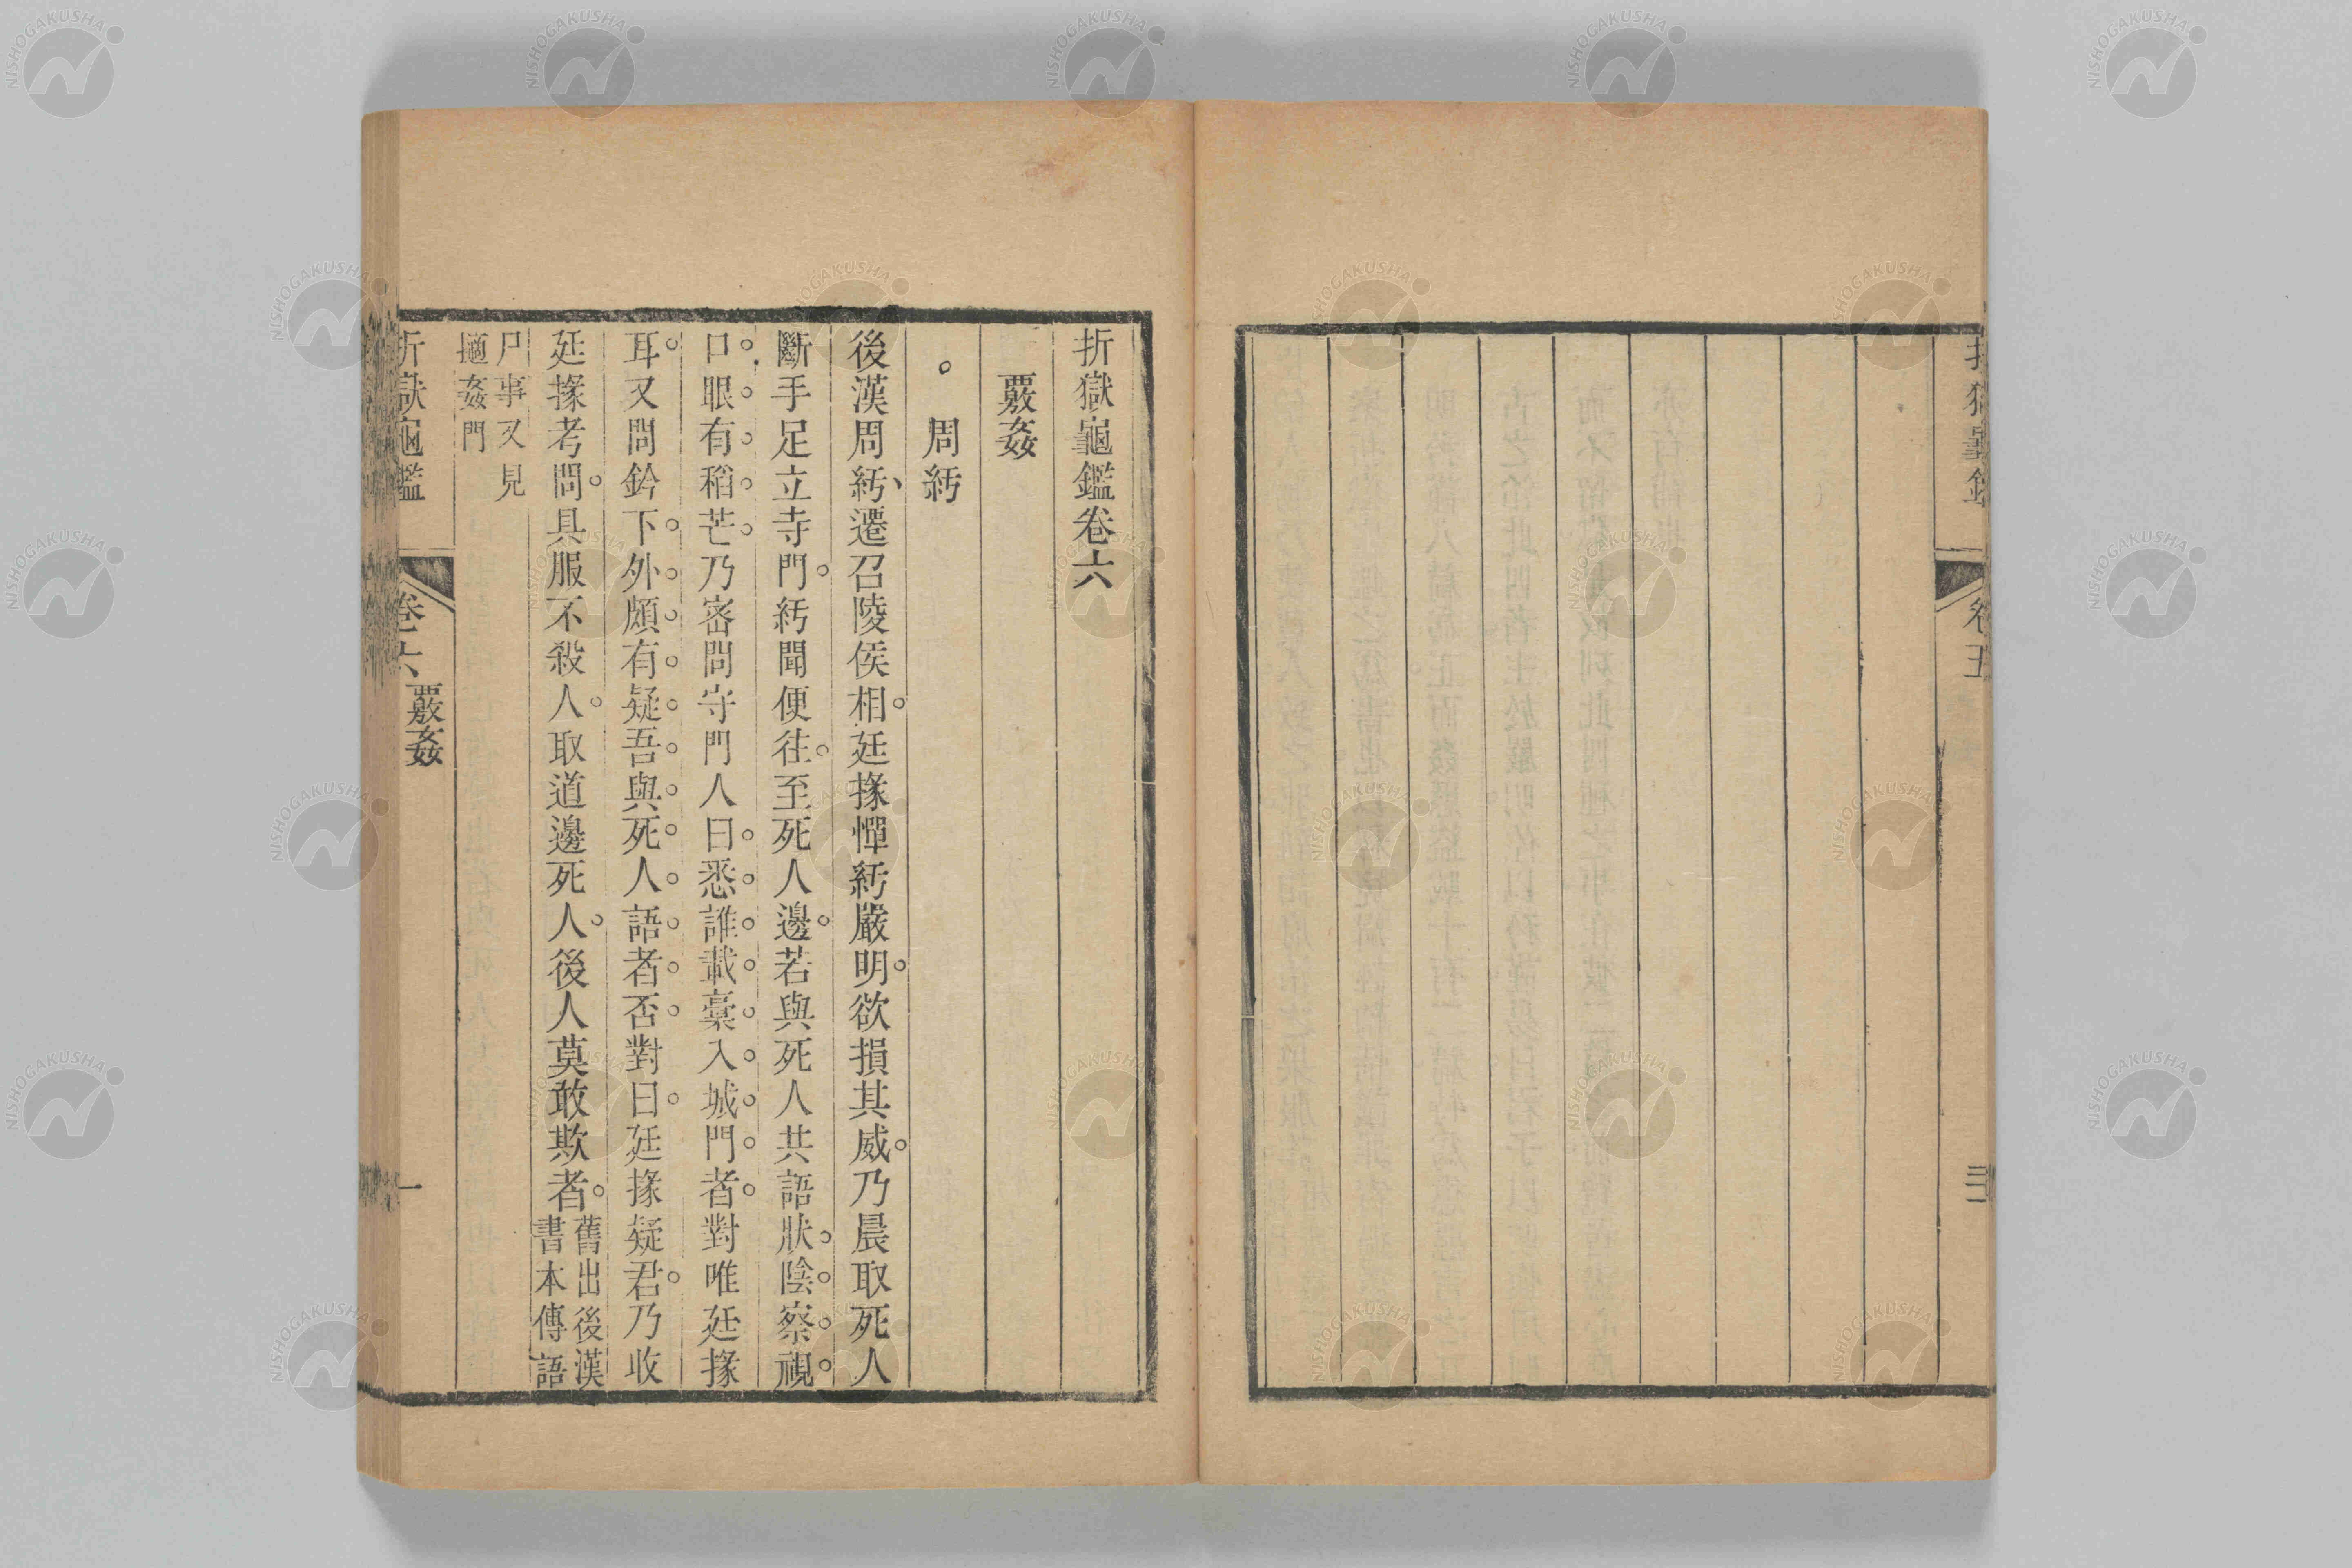 折獄龜鑑卷六
覈姦
周紆
後漢周紆遷召陵侯相廷掾憚紆嚴明欲損其威乃晨取死人
斷手足立寺門紆聞便往至死人邊若與死人共語狀陰察視
口眼有稻芒乃密問守門人曰悉誰載藁入城門者對唯廷掾
耳又問鈐下外頗有疑吾與死人語者否對曰廷掾疑君乃收
廷掾考問具服不殺人取道邊死人後人莫敢欺者舊出後漢
書本傳語
尸事又見
擿姦門
折獄龜鑑
卷六
覈姦
一
卷五
NISHOGAKUSHA